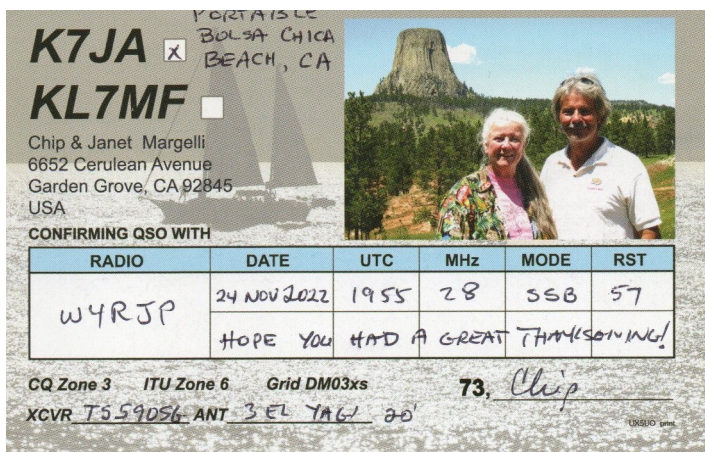 PORTABLE
K7JA x BOLSA CHICA
BEACH, CA
KL7MF
Chip & Janet Margelli
6652 Cerulean Avenue
Garden Grove, CA 92845
USA
CONFIRMING QSO WITH
RADIO DATE UTC MHz MODE RST
W4RJP 24 NOV 2022 1955 28 SSB 57
HOPE YOU HAD A GREAT THANKSGIVING!
CQ Zone 3 ITU Zone 6 Grid DM03xs
73, Chip
XCVR TS590SG ANT 3 EL YAGI 20'
UX5UO print